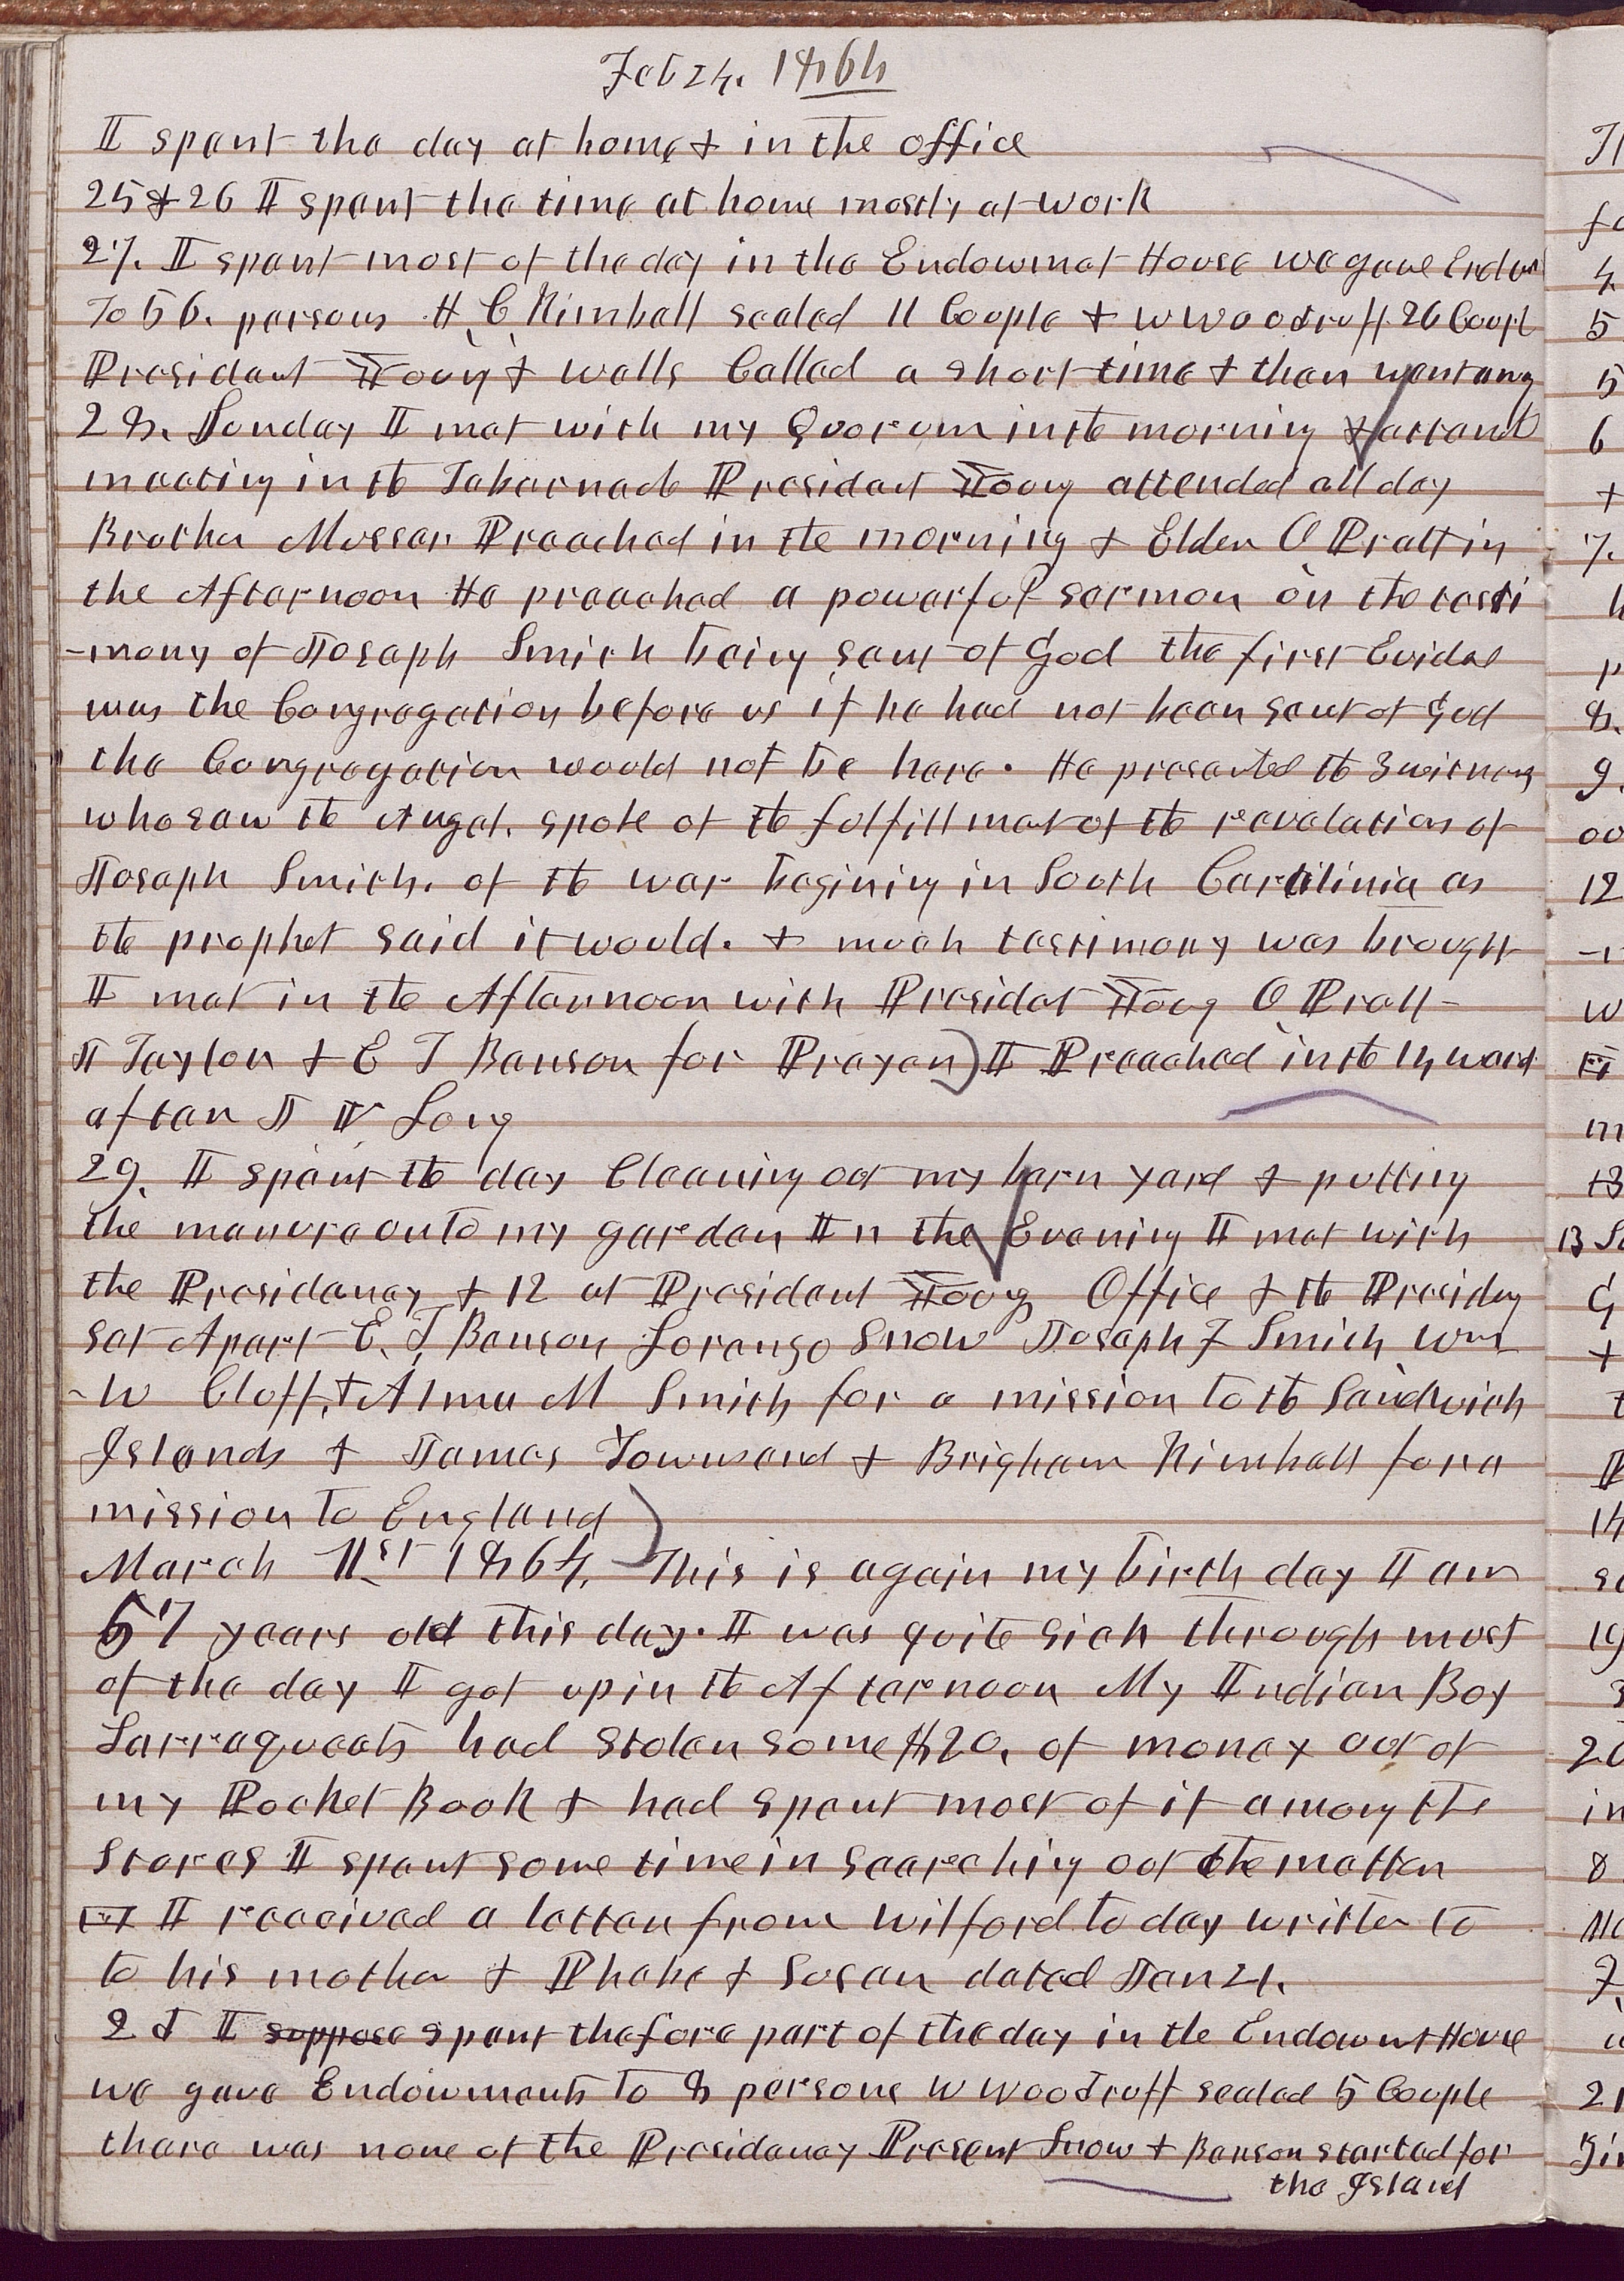 Feb 24. 1864
I spent the day at home & in the office
25 & 26 I spent the time at home mostly at work
27. I spent most of the day in the Endowmet House we gave Endow
To 56. persons H C Kimball sealed 11 Couple & W Woodruff 26 Coupl
President Young & Wells Called a short time & then went away
28. Sunday I met with my Quorum in the morning & attend
meeting in the Tabernacle President Young attended all day
Brother Musser Preached in the morning & Elder O Pratt in
the Afternoon He preached a powerful sermon on the testi
-mony of Joseph Smith being sent of God the first Evidae
was the Congregation before us if he had not been sent of God
the Congregation would not be here. He presented the 3 witness
who saw the Angel. spoke of the fulfillmet of the revelations of
Joseph Smith. of the war begining in South Carolinia as
the prophet said it would. & much testimony was brought
I met in the Afternoon with Presidet Young O Pratt
J Taylor & E T Benson for Prayer) I Preached in the 14 ward
after J V Long
29. I spent the day Cleaning out my barn yard & putting
the manure onto my garden In the Evening I met with
the Presidency & 12 at President Young Office & the Presidny
set Apart E. T, Benson Lorenzo Snow Joseph F Smith Wm
-W Cluff, & Alma M Smith for a mission to the Sandwich
Islands & James Townsend & Brigham Kimball for a
mission to England)
March 1st 1864, This is again my birth day I am
57 years old this day. I was quite sick through most
of the day I got up in the Afternoon My Indian Boy
Sarraqueats had stolen some $20, of money out of
my Pocket Book & had spent most of it among the
stores I spent some time in searching out the matter
I received a letter from Wilford to day written to
to his mother & Phebe & Susan dated Jan 21.
2d I suppose spent the fore part of the day in the Endowmt House
we gave Endowments to 8 persons W Woodruff sealed 5 Couple
there was none of the Presidency Present Snow & Benson started for
the Island